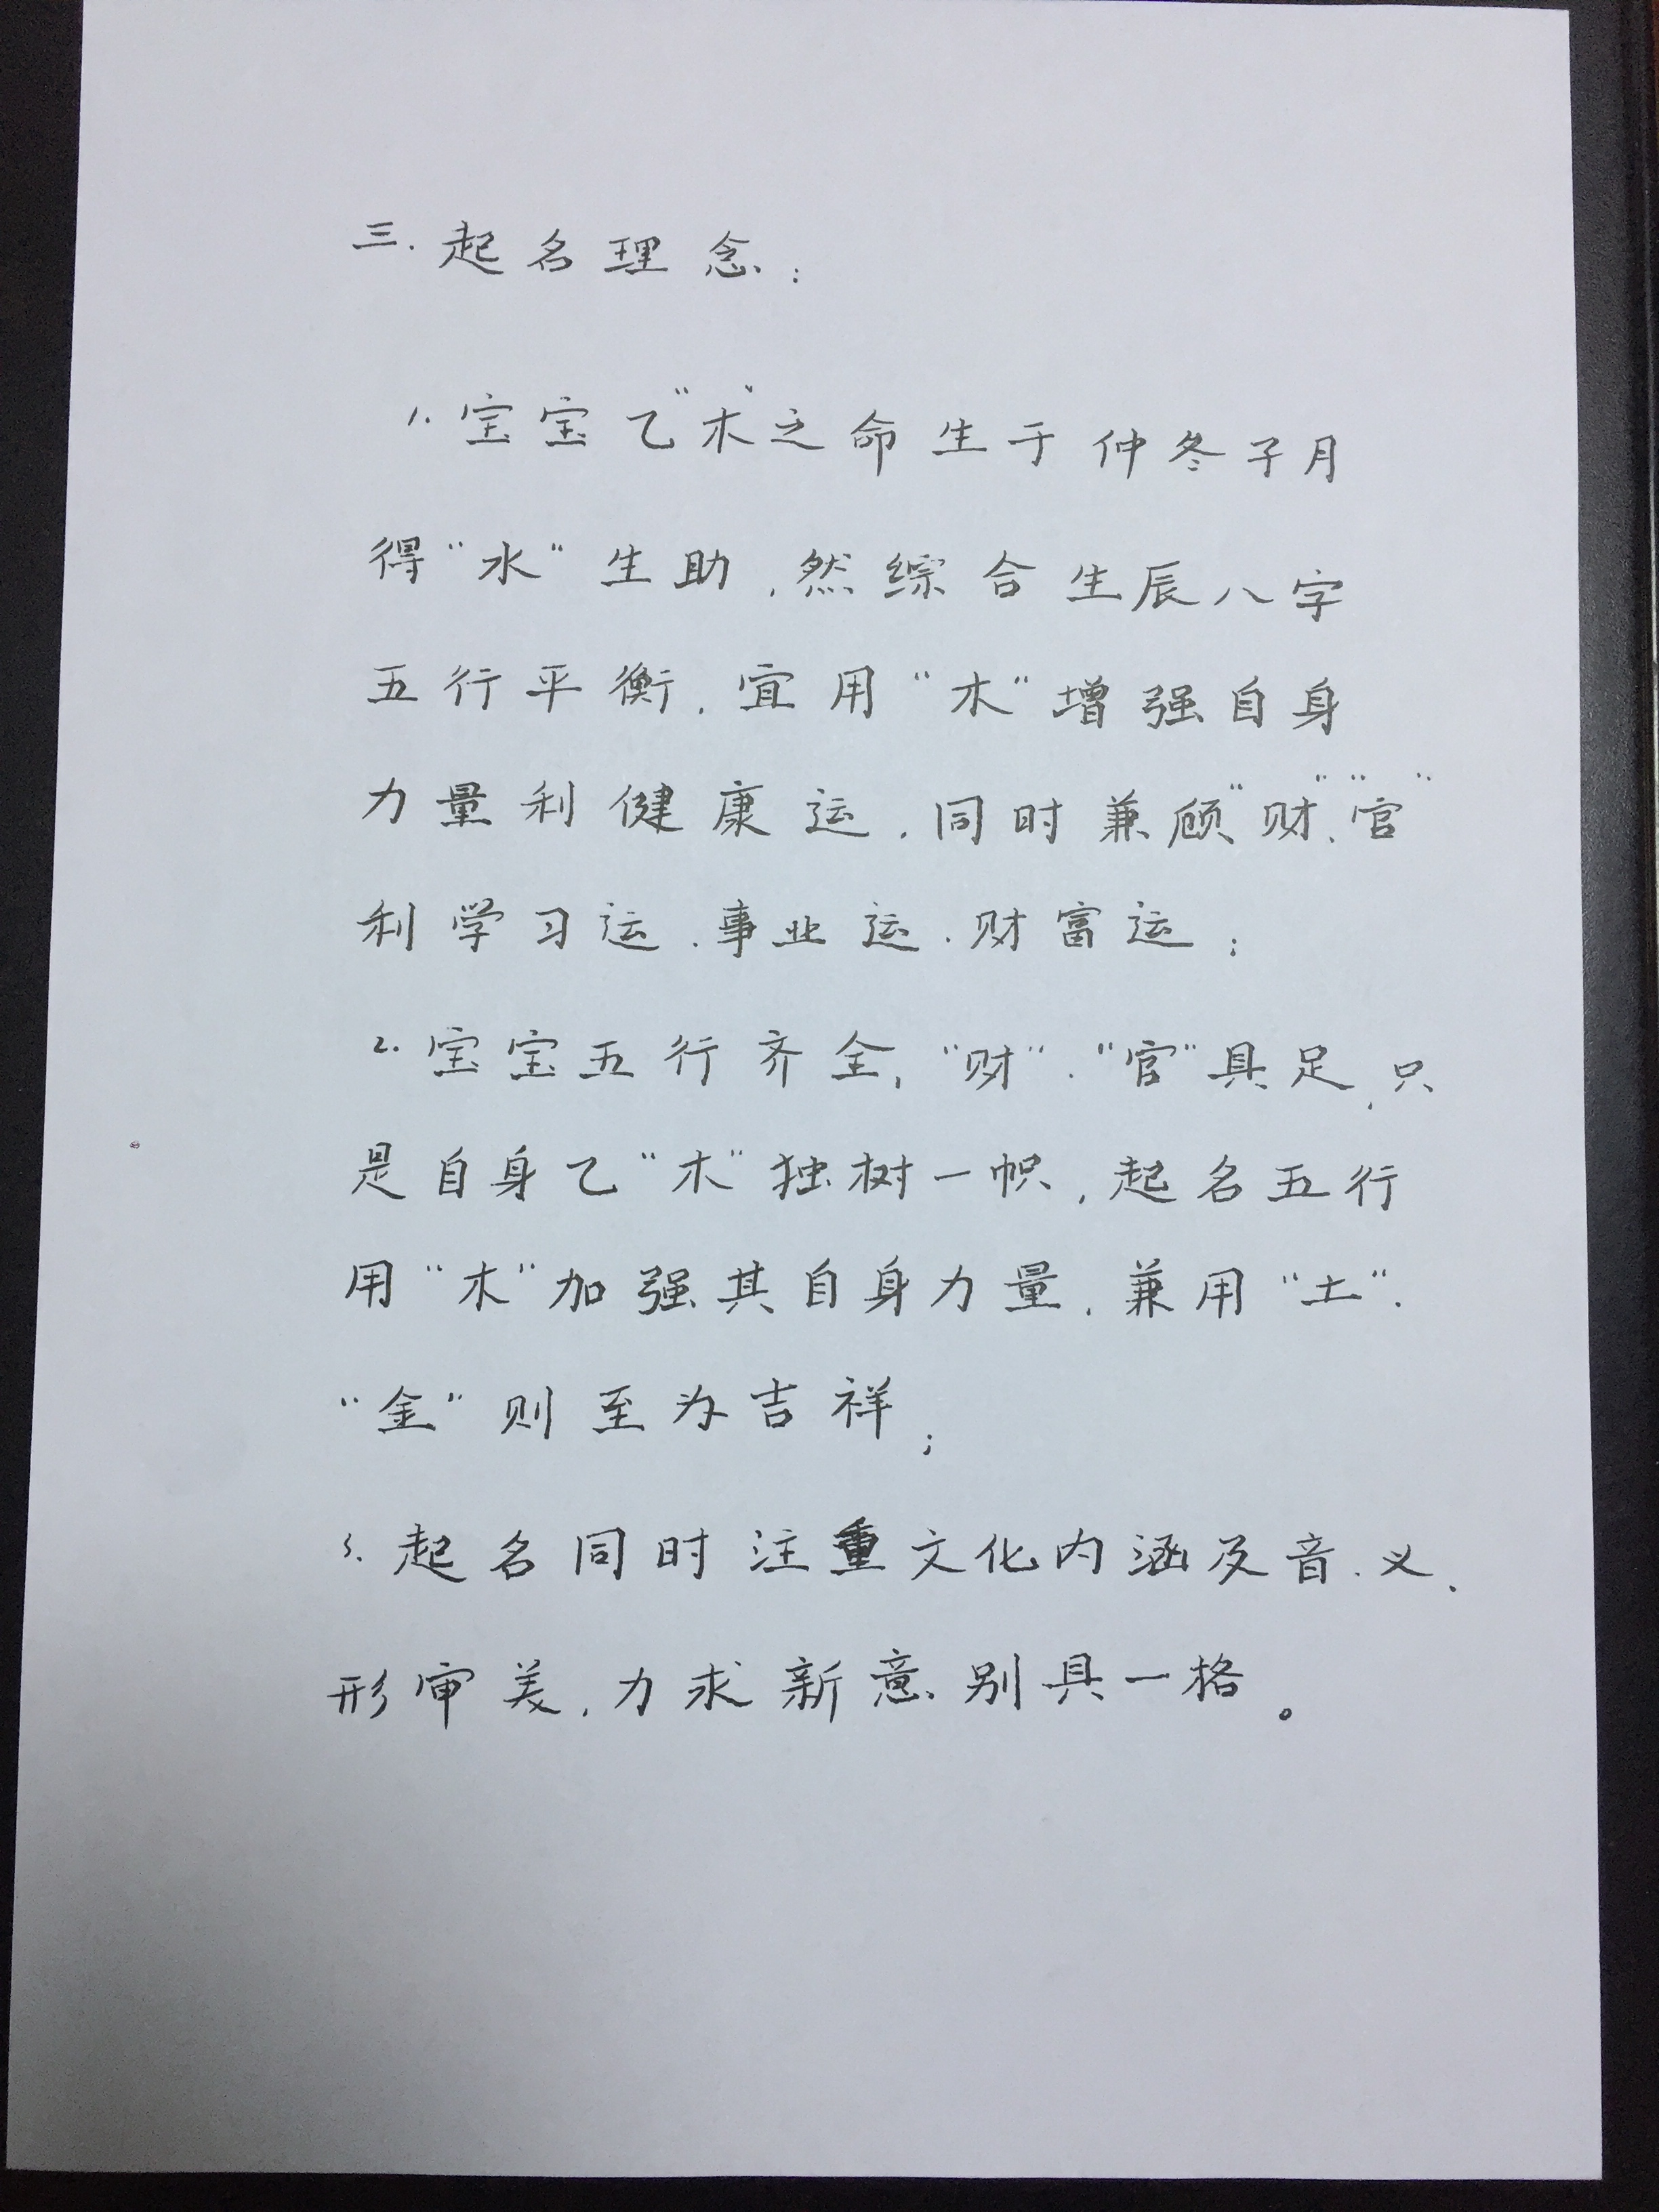 三.起名理念：
1.宝宝乙“木”之命生于仲冬子月
得“水”生助,然综合生辰八字
五行平衡,宜用“木”增强自身
力量利健康运,同时兼顾“财”、“官”
利学习运、事业运、财富运；
2.宝宝五行齐全,“财”、“官”具足,只
是自身乙“木”独树一帜,起名五行
用“木”加强其自身力量,兼用“土”、
“金”则至为吉祥；
3.起名同时注重文化内涵及音、义、
形审美,力求新意、别具一格。